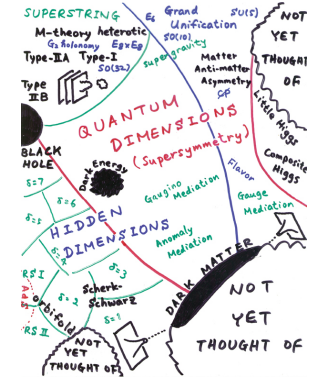 SUPERSTRING
M-theory heterotic
G₂ holonomy E₈×E₈
Type-IIA Type-I
SO(32)
Type
IIB
E₆ Grand
Unification
SO(10)
SU(5)
supergravity
Matter
Anti-matter
Asymmetry
CP
NOT
YET
THOUGHT
OF
Little Higgs
Composite
Higgs
QUANTUM
DIMENSIONS
(Supersymmetry)
BLACK
HOLE
Dark Energy
Flavor
Gaugino
Mediation
Gauge
Mediation
Anomaly
Mediation
HIDDEN
DIMENSIONS
δ=7
δ=6
δ=5
δ=4
δ=3
δ=2
δ=1
Scherk-
Schwarz
RS I
AdS
RS II
orbifold
DARK MATTER
NOT
YET
THOUGHT OF
NOT
YET
THOUGHT OF